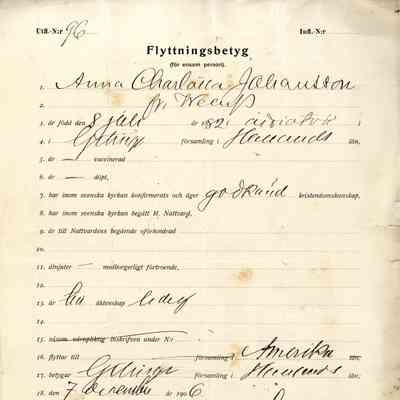 Utfl.-N:r 96 Infl.-N:r
Flyttningsbetyg
(för ensam person).
1. Anna Charlotta Johansson
2.
3. är född den 8 år 182
4. i Getinge församling i Hallands län,
5. är — vaccinerad
6. är — döpt,
7. har inom svenska kyrkan konfirmerats och äger godkänd kristendomskunskap,
8. har inom svenska kyrkan begått H. Nattvard,
9. är till Nattvardens begående oförhindrad
10.
11. åtnjuter — medborgerligt förtroende,
12.
13. är till äktenskap ledig
14.
15. såsom värnpliktig inskrifven under N:r
16. flyttar till församling i Amerika län,
17. betygar Getinge församling i Hallands län,
18. den 7 december 1906